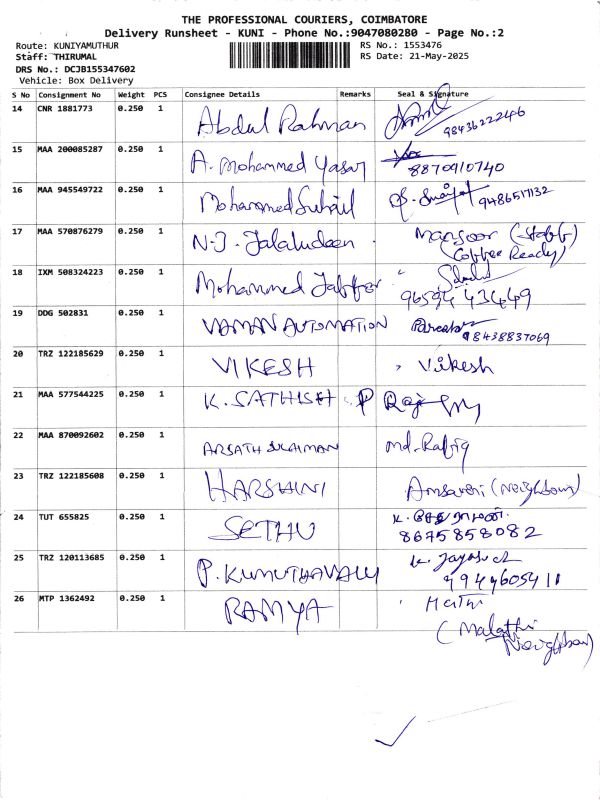 THE PROFESSIONAL COURIERS, COIMBATORE
Delivery Runsheet - KUNI - Phone No.:9047080280 - Page No.:2
Route: KUNIYAMUTHUR
RS No.: 1553476
Staff: THIRUMAL
RS Date: 21-May-2025
DRS No.: DCJB155347602
Vehicle: Box Delivery
S No Consignment No Weight PCS Consignee Details Remarks Seal & Signature
14 CNR 1881773 0.250 1 Abdul Rahman
9843622246
15 MAA 200085287 0.250 1 A. Mohammed Yasar
8870910740
16 MAA 945549722 0.250 1 Mohammed Suhail
9486517132
17 MAA 570876279 0.250 1 N.J. Jalaludeen Mansoor (Staff)
(Coffee Ready)
18 IXM 508324223 0.250 1 Mohammed Jaffer
96594 43449
19 DDG 502831 0.250 1 VAMAN AUTOMATION
98438837069
20 TRZ 122185629 0.250 1 VIKESH Vikesh
21 MAA 577544225 0.250 1 K. SATHISH P Raj
22 MAA 870092602 0.250 1 ARSATH SULAIMAN md. Rafiq
23 TRZ 122185608 0.250 1 HARSHINI (Neighbour)
24 TUT 655825 0.250 1 SETHU
8675858082
25 TRZ 120113685 0.250 1 P. KUMUTHAVALLI
9944605411
26 MTP 1362492 0.250 1 RAMYA
(Malathi
Neighbour)